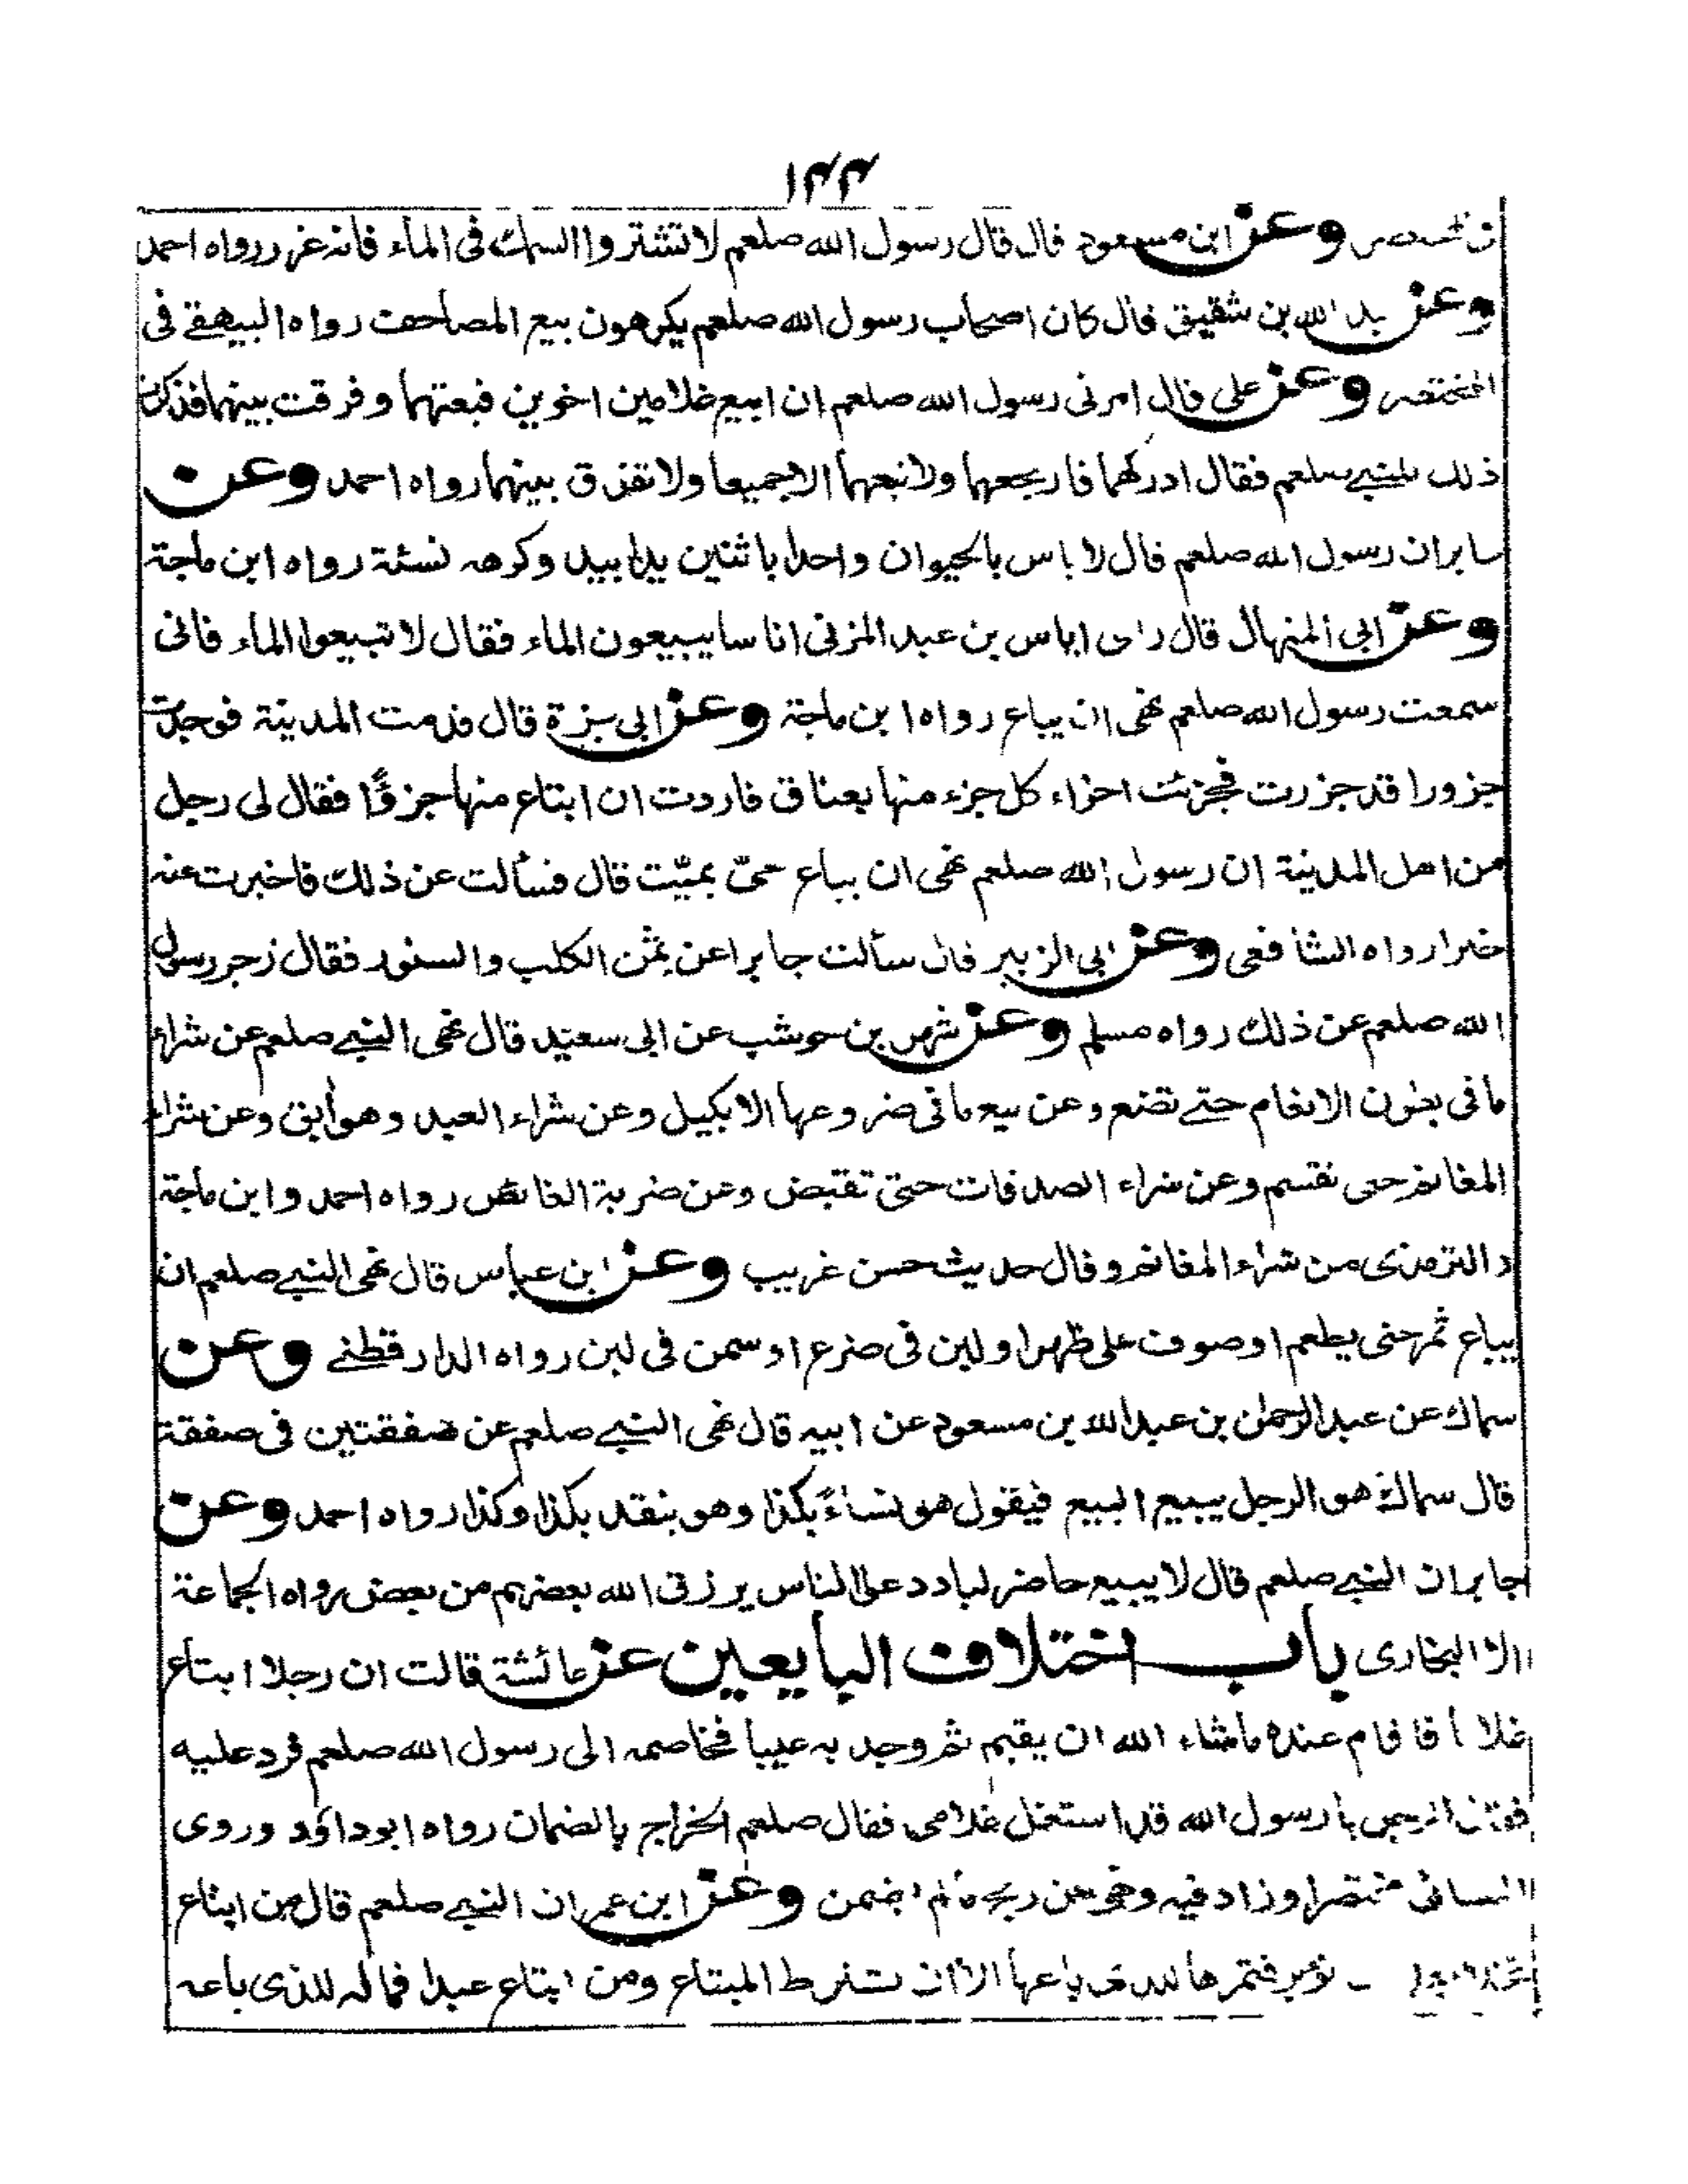 ١٣٣
وعن ابن مسعود قال قال رسول الله صلعم لا تشتروا السمك فى الماء فانه غرر رواه احمد
وعن الله بن شقيق قال كان اصحاب رسول الله صلعم يكرهون بيع المصاحف رواه البيهقے فى
المختصر وعن على قال امرنى رسول الله صلعم ان ابيع غلامين اخوين فبعتهما وفرقت بينهما فذكرت
ذلك للنبے صلعم فقال ادركهما فارجعهما ولا تبعهما الا جميعا ولا تفرق بينهما رواه احمد وعن
جابر ان رسول الله صلعم قال لا باس بالحيوان واحدا باثنين يدا بيد وكرهه نسئة رواه ابن ماجة
وعن ابى المنهال قال راى اياس بن عبد المزنى اناسا يبيعون الماء فقال لا تبيعوا الماء فانى
سمعت رسول الله صلعم نهى ان يباع رواه ابن ماجة وعن ابى بزة قال قدمت المدينة فوجدت
جزورا قد جزرت فجزئت اجزاء كل جزء منها بعناق فاردت ان ابتاع منها جزؤًا فقال لى رجل
من اهل المدينة ان رسول الله صلعم نهى ان يباع حىّ بميّت قال فسألت عن ذلك فاخبرت عنه
خيرا رواه الشافعى وعن ابى الزبير قال سألت جابرا عن ثمن الكلب والسنور فقال زجر رسول
الله صلعم عن ذلك رواه مسلم وعن شهر بن حوشب عن ابى سعيد قال نهى النبے صلعم عن شراء
ما فى بطون الانعام حتے تضع وعن بيع ما فى ضروعها الا بكيل وعن شراء العبد وهو أبق وعن شراء
المغانم حتى تقسم وعن شراء الصدقات حتى تقبض وعن ضربة الغائص رواه احمد وابن ماجة
والترمذى من شراء المغانم وقال حديث حسن غريب وعن ابن عباس قال نهى النبے صلعم ان
يباع ثمر حتى يطعم او صوف على ظهر او لبن فى ضرع او سمن فى لبن رواه الدارقطنے وعن
سماك عن عبد الرحمن بن عبد الله بن مسعود عن ابيه قال نهى النبے صلعم عن صفقتين فى صفقة
قال سماك هو الرجل يبيع البيع فيقول هو نساءً بكذا وهو بنقد بكذا وكذا رواه احمد وعن
جابر ان النبے صلعم قال لا يبيع حاضر لباد دعوا الناس يرزق الله بعضهم من بعض رواه الجماعة
الا البخارى باب اختلاف البايعين عن عائشة قالت ان رجلا ابتاع
غلاما فاقام عنده ما شاء الله ان يقيم ثم وجد به عيبا فخاصمه الى رسول الله صلعم فرد عليه
فقال الرجل يا رسول الله قد استغل غلامى فقال صلعم الخراج بالضمان رواه ابو داؤد وروى
النسائى مختصرا وزاد فيه ونهى عن ربح ما لم يضمن وعن ابن عمر ان النبے صلعم قال من ابتاع
تؤبر فثمرها للذى باعها الا ان يشترط المبتاع ومن ابتاع عبدا فماله للذى باعه